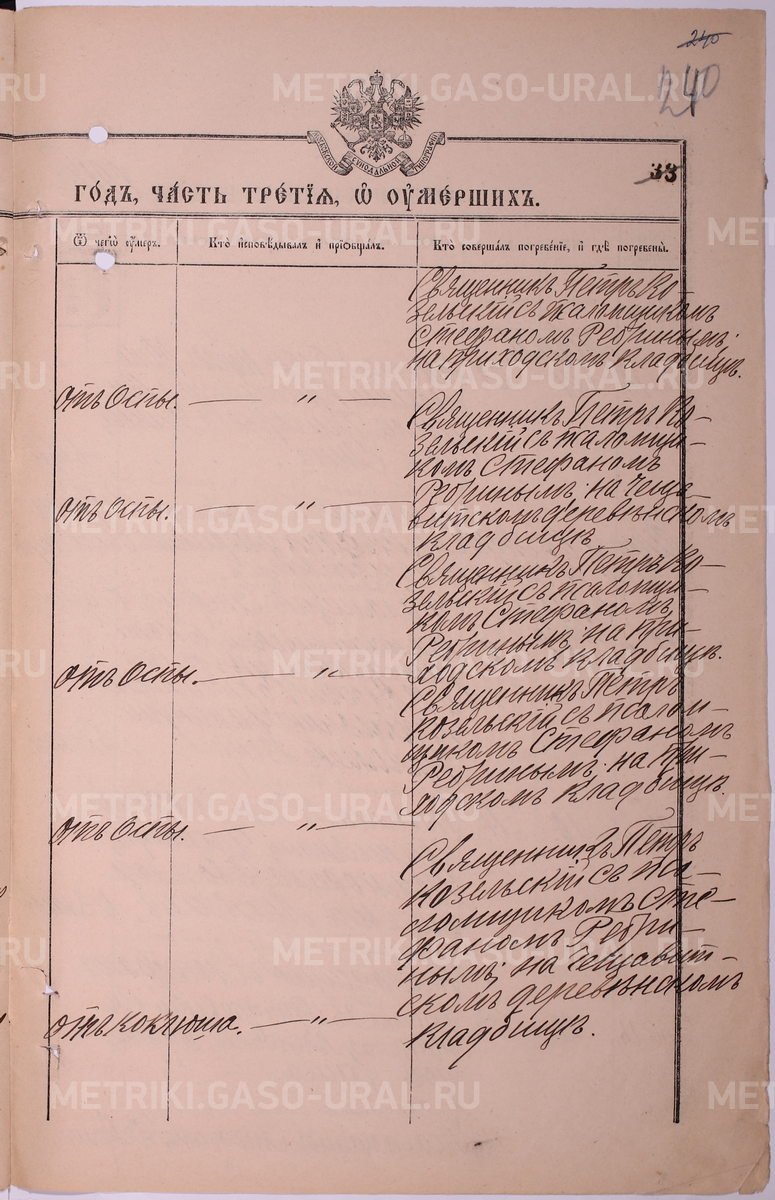 240
240
МОСКОВСКОЙ СИНОДАЛЬНОЙ ТИПОГРАФІИ
33
ГО́ДЪ, ЧА́СТЬ ТРЕ́ТІѦ, Ѿ ОУ҆МЕ́РШИХЪ.
Ѿ чегѡ̀ ᲂу҆́меръ.
Кто̀ и҆сповѣ́дывалъ и҆ прїѡбща́лъ.
Кто̀ соверша́лъ погребе́нїе, и҆ гдѣ̀ погребены̀.
Священникъ Петръ Ко-
зельскій съ псаломщикомъ
Стефаномъ Ребринымъ;
на приходскомъ кладбищѣ.
отъ Оспы. — " —
Священникъ Петръ Ко-
зельскій съ псаломщи-
комъ Стефаномъ
Ребринымъ; на
витскомъ деревенскомъ
кладбищѣ
отъ Оспы. — " —
Священникъ Петръ Ко-
зельскій съ псаломщи-
комъ Стефаномъ
Ребринымъ; на при-
ходскомъ кладбищѣ.
отъ Оспы. — " —
Священникъ Петръ
Козельскій съ псалом-
щикомъ Стефаномъ
Ребринымъ; на при-
ходскомъ кладбищѣ.
отъ Оспы. — " —
Священникъ Петръ
Козельскій съ пса-
ломщикомъ Сте-
фаномъ Ребри-
нымъ; на
скомъ деревенскомъ
кладбищѣ.
отъ коклюша. — " —
METRIKI.GASO-URAL.RU